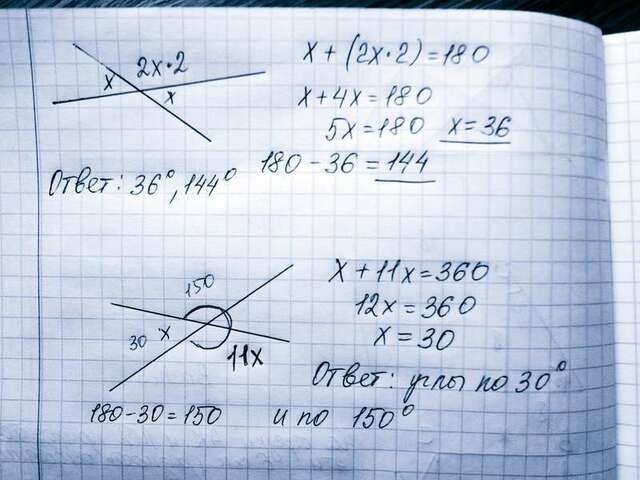 2x·2
x
x
x + (2x·2) = 180
x + 4x = 180
5x = 180 x = 36
180 - 36 = 144
Ответ: 36°, 144°
150
30 x
11x
x + 11x = 360
12x = 360
x = 30
Ответ: углы по 30°
180 - 30 = 150 и по 150°